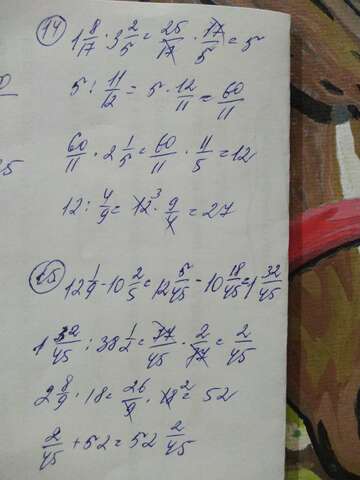 14
1 8/17 · 3 2/5 = 25/17 · 17/5 = 5
5 : 11/12 = 5 · 12/11 = 60/11
60/11 · 2 1/5 = 60/11 · 11/5 = 12
12 : 4/9 = 12 3 · 9/4 = 27
15
12 1/9 - 10 2/5 = 12 5/45 - 10 18/45 = 1 32/45
1 32/45 : 38 1/2 = 77/45 · 2/77 = 2/45
2 8/9 · 18 = 26/9 · 18 2 = 52
2/45 + 52 = 52 2/45